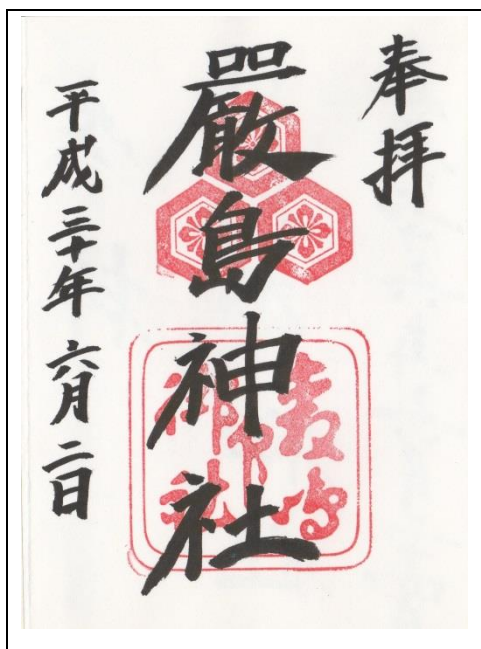 奉拝
嚴島神社
平成三十年六月二日